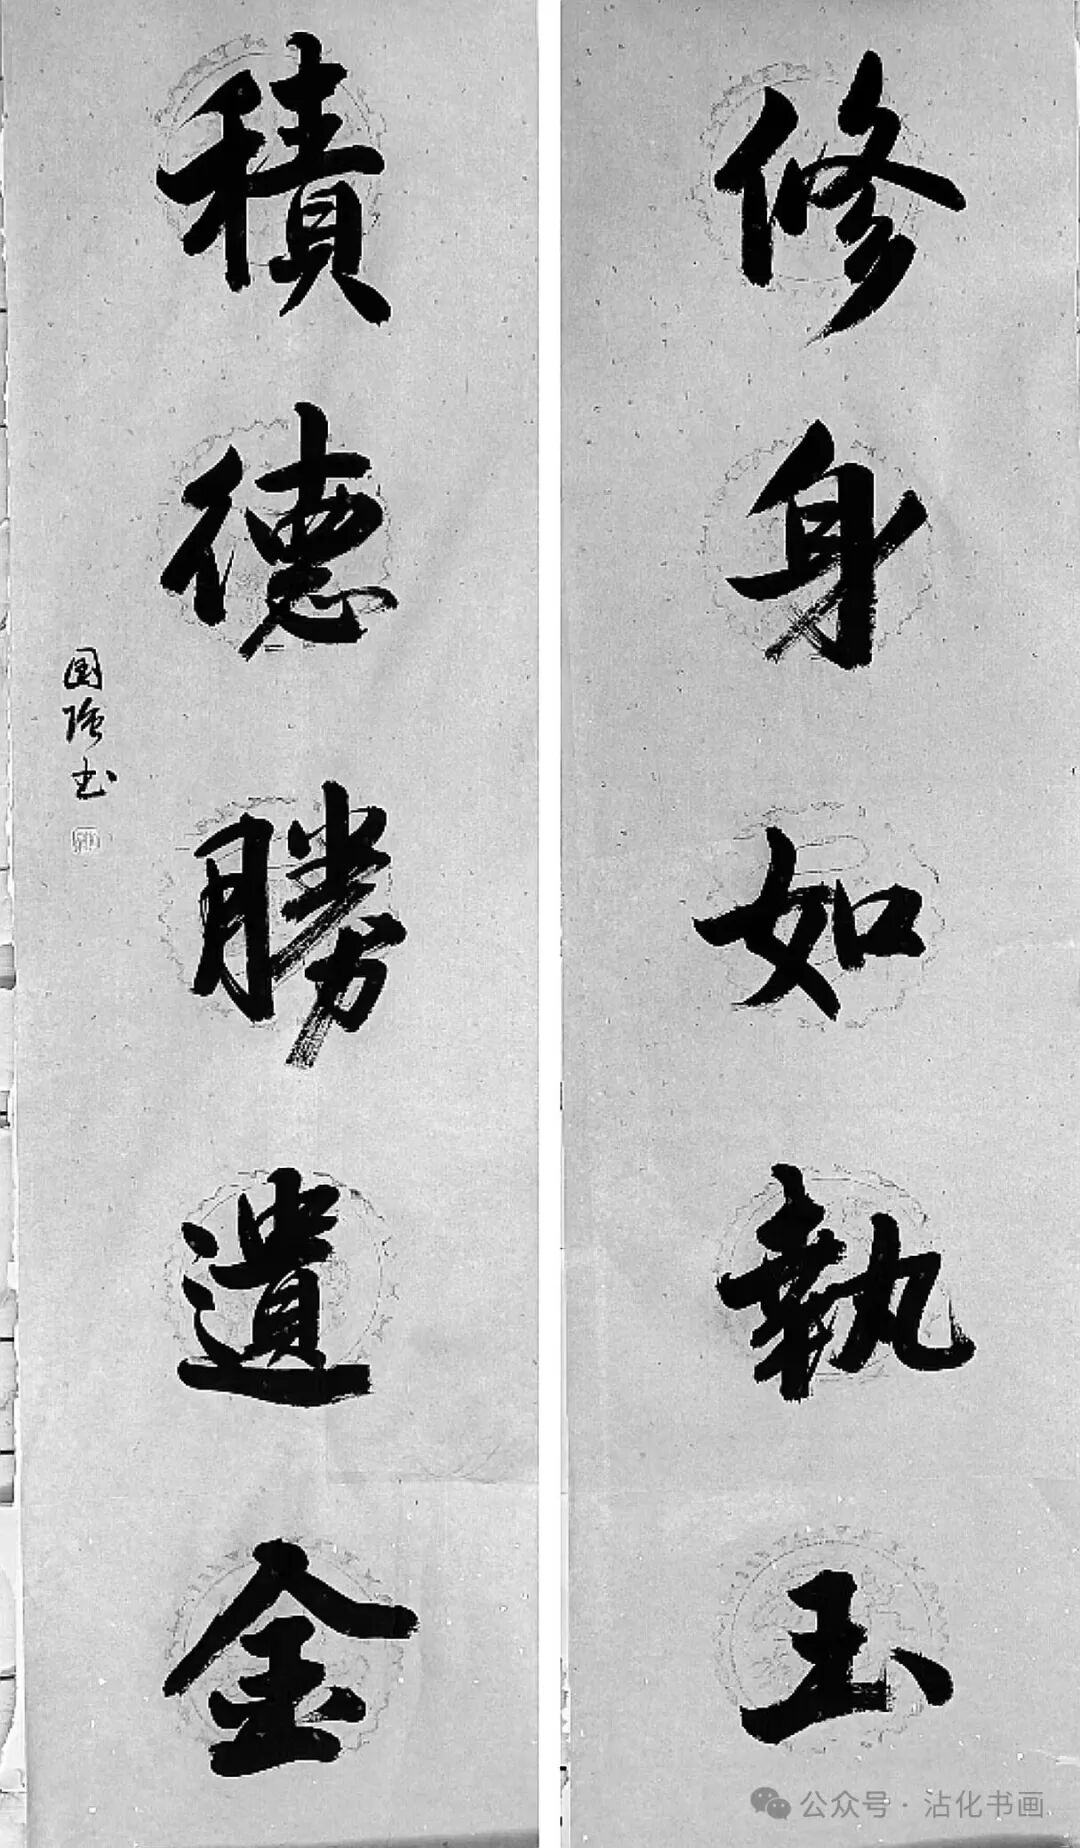 修身如執玉
積德勝遺金
国强书
公众号·沾化书画